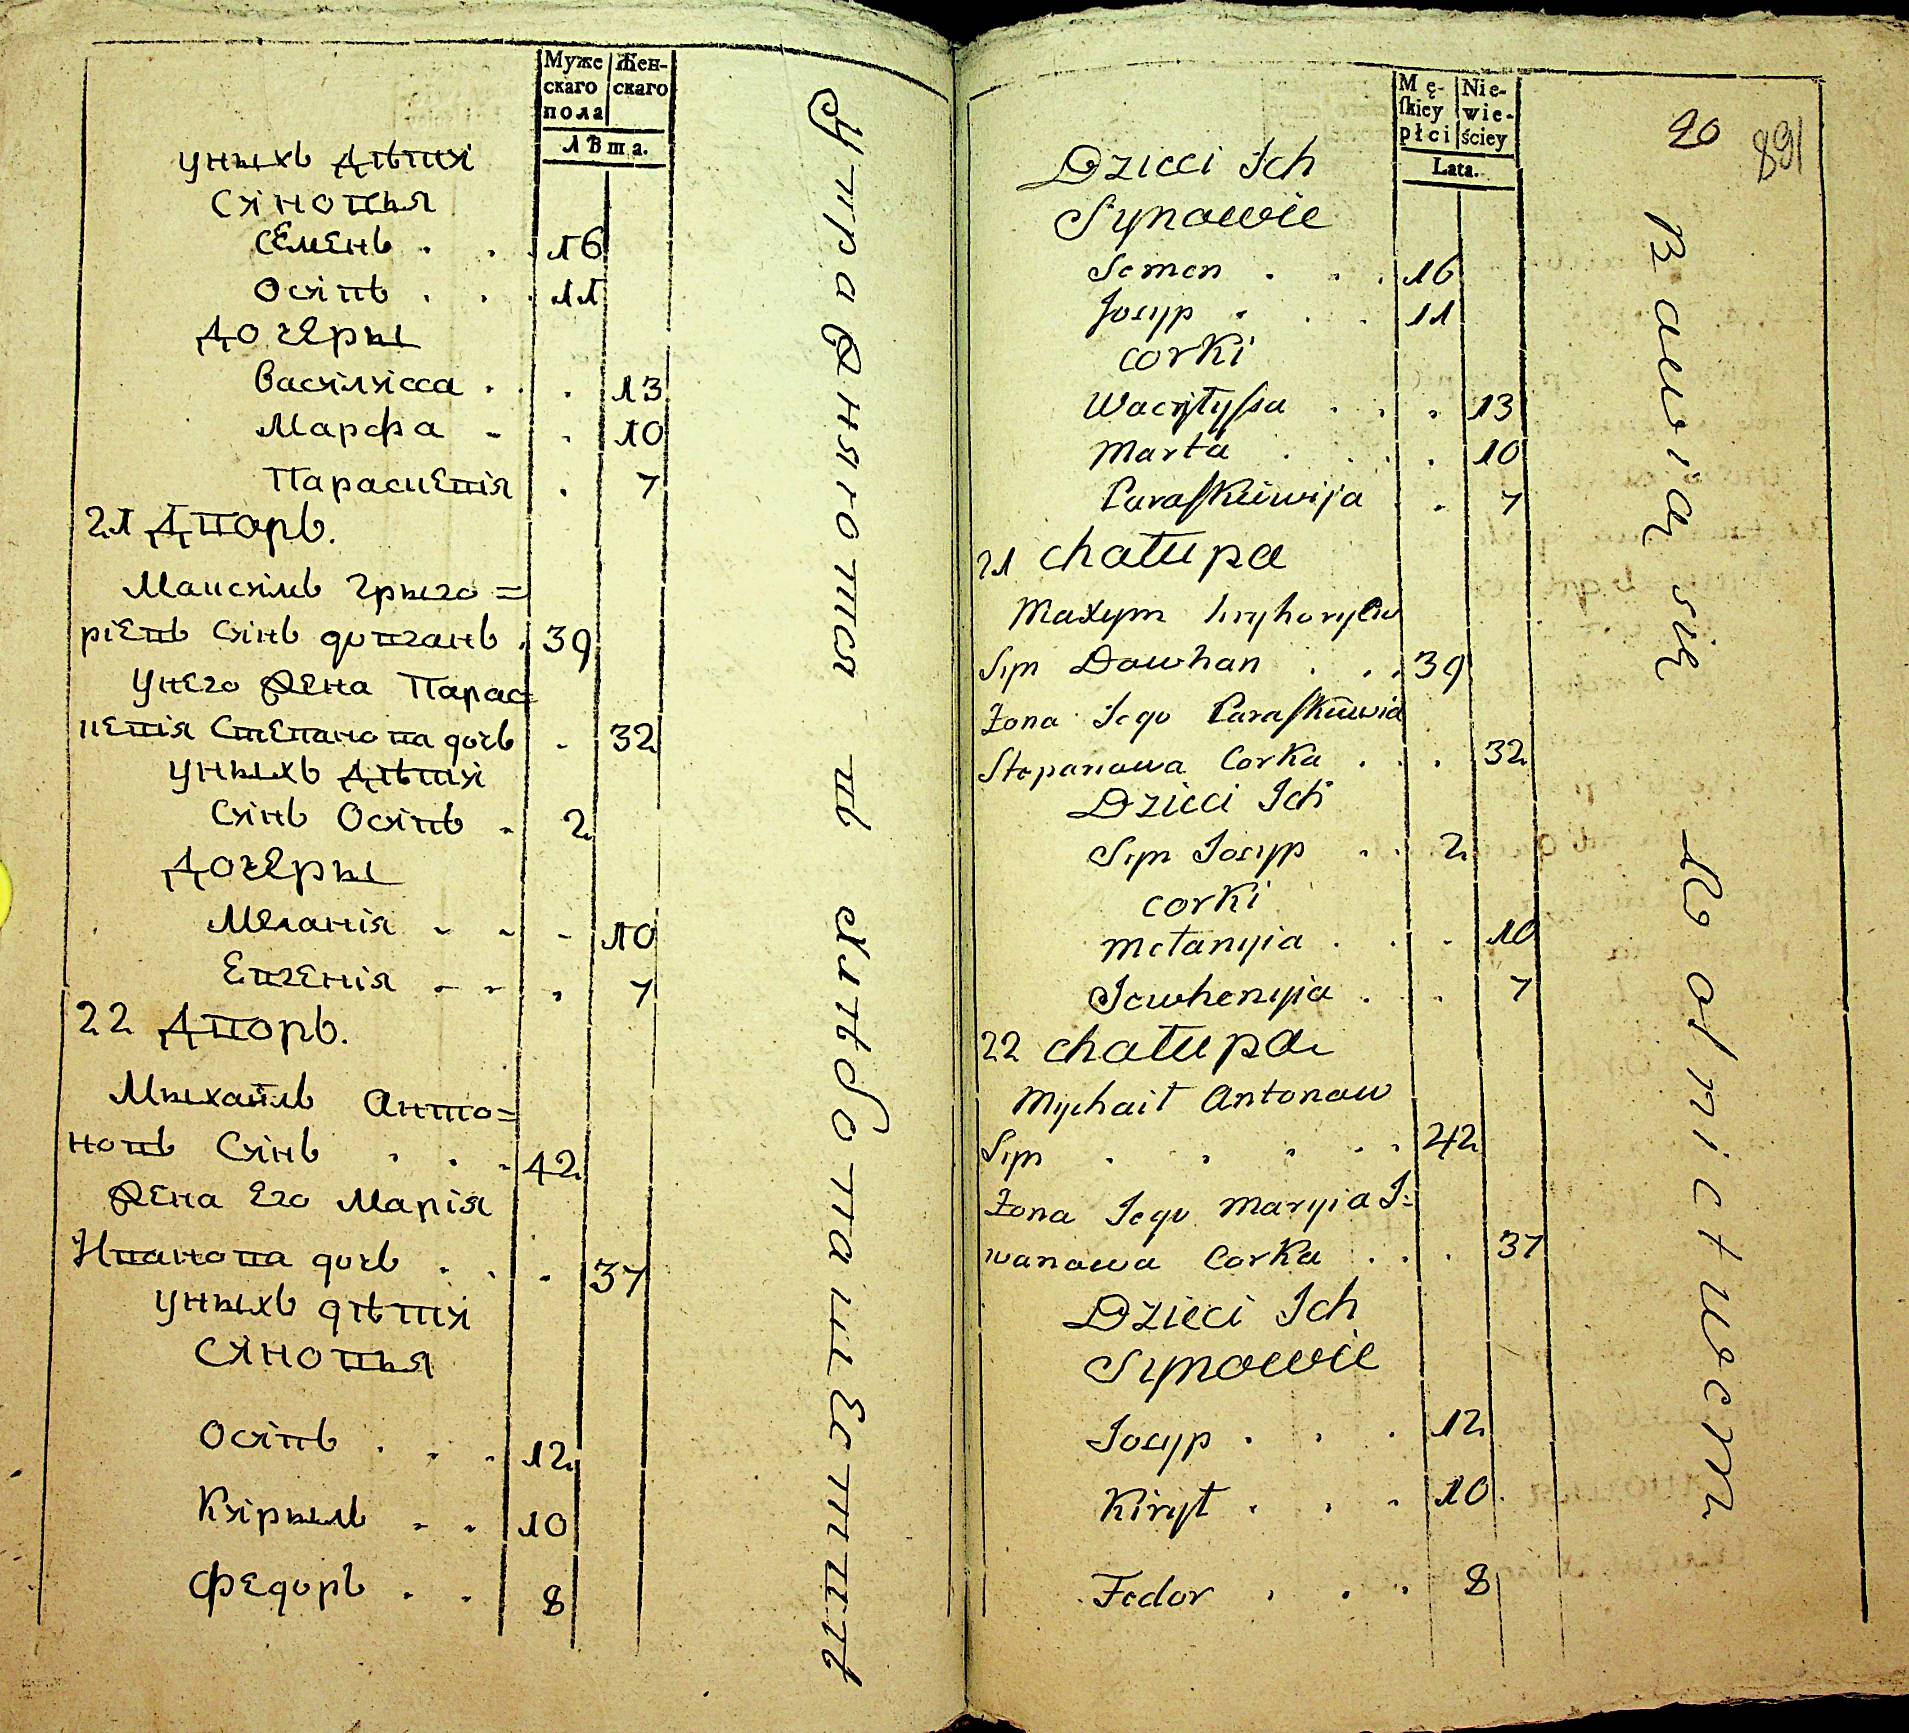 Муже Жен-
скаго скаго
пола
лѣта.
уныхъ дѣтѝ
Сѝновья
Семенъ . . . 16
Осѝпъ . . . 11
Дочеры
Васѝлѝсса . . . 13
Марфа . . 10
Параскевія . 7
21 Дворъ.
Максѝмъ Грыго=
ріевъ Сѝнъ довганъ . 39
Унего Жена Парас
кевія Степанова дочъ . 32
уныхъ дѣтѝ
Сѝнъ Осѝпъ . 2
Дочеры
Меланія . . . 10
Евгенія . . . 7
22 Дворъ.
Мыхайлъ Анто=
новъ Сѝнъ . . . 42
Жена Его Марія
Иванова дочъ . . . 37
уныхъ дѣтѝ
Сѝновья
Осѝпъ . . . 12
Кѝрылъ . . 10
Федоръ . . 8
Упражняются въ хлѣбопашествѣ
Mę- Nie-
ſkiey wie-
płci ściey
Lata.
20 891
Dzieci Ich
Synowie
Semen . . . 16
Josyp . . . 11
corki
Wacyłyſsa . . . 13
Marta . . . . 10
Paraſkiewija . . 7
21 chałupa
Maxym hryhoryiw
Syn Dowhan . . . 39
Żona Jego Paraſkiewia
Stepanowa Corka . . . 32
Dzieci Ich
Syn Josyp . . 2
corki
Mełanyia . . . 10
Jewhenyia . . 7
22 chałupa
Mychaił Antonow
Syn . . . . . 42
Żona Jego Maryia J:
wanowa Corka . . . 37
Dzieci Ich
Synowie
Josyp . . . 12
Kirył . . . 10
Fedor . . . 8
Bawią się Rolnictwem